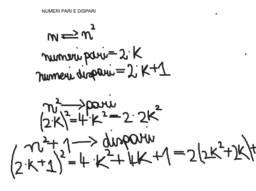 NUMERI PARI E DISPARI
n ⇄ n²
numeri pari = 2·K
numeri dispari = 2·K+1
n² → pari
(2·K)² = 4·K² = 2·2K²
n²+1 → dispari
(2·K+1)² = 4·K²+4K+1 = 2(2K²+2K)+